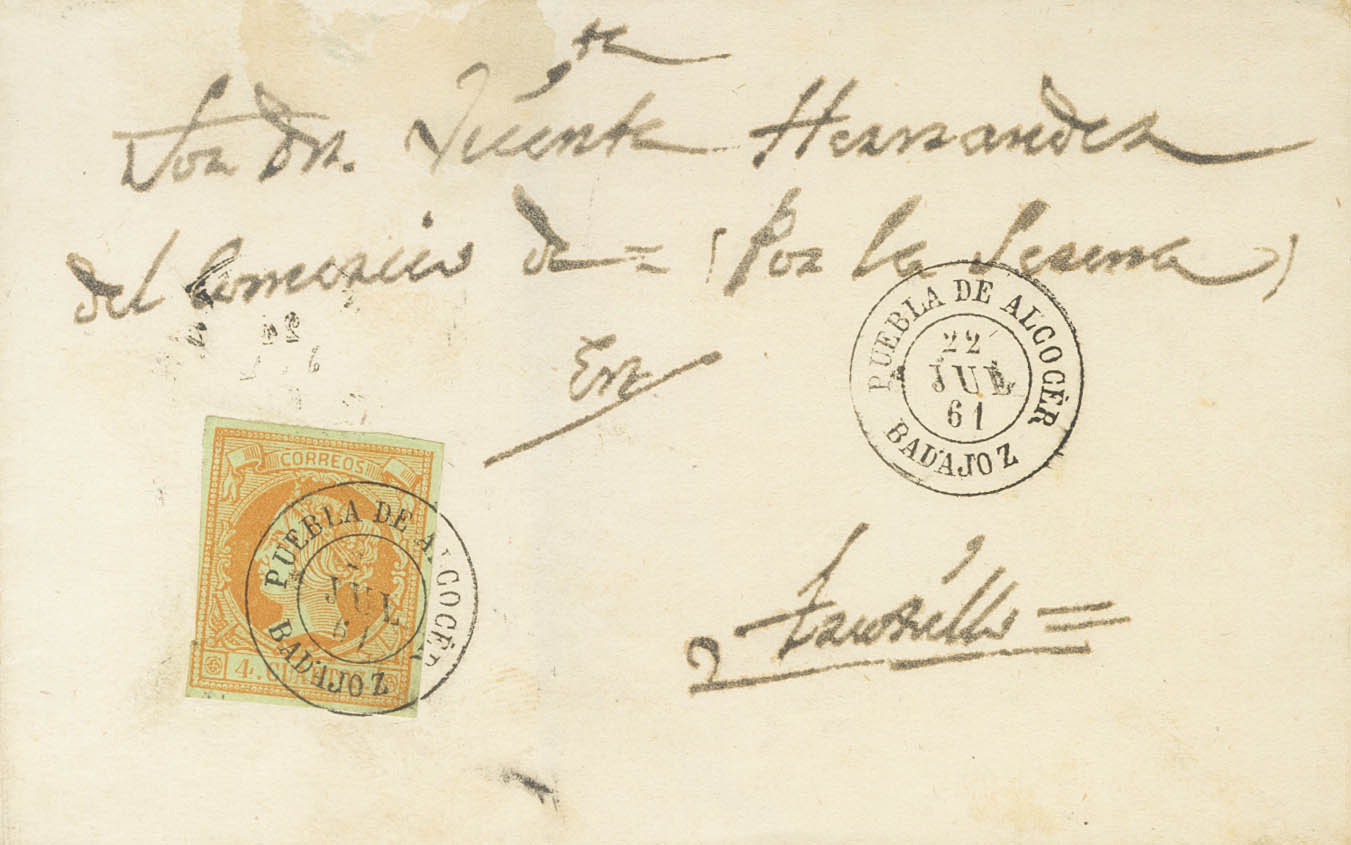 Sor Dn. Vicente Hernandez
del Comercio de = (Por la Serena)
En
PUEBLA DE ALGOCÉR
22
JUL
61
BADAJOZ
Trujillo =
CORREOS
PUEBLA DE ALGOCÉR
JUL
61
BADAJOZ
4.